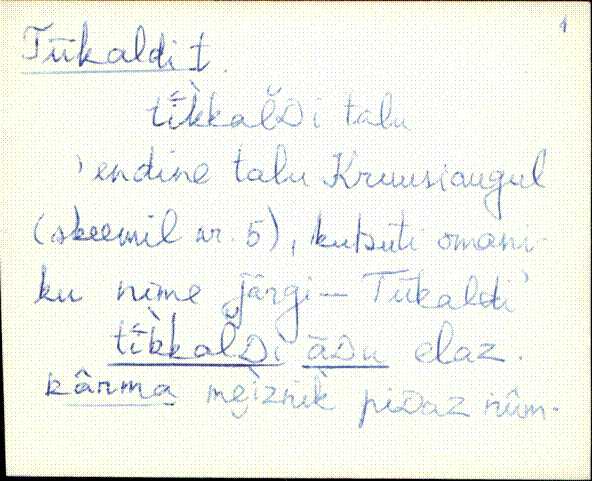 1
Tükaldi t.
tíkkalᴅi talu
'endine talu Kruusiaugul
(skeemil nr. 5), kutsuti omani-
ku nime järgi — Tükaldi'
tíkkalᴅi āᴅu elaz.
kârma meìznik piᴅaz nûm-